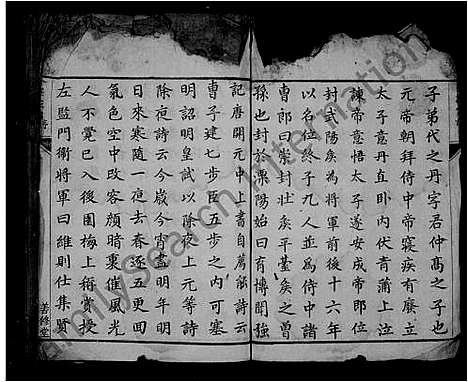 子弟代之丹字君仲高之子也
元帝朝拜侍中帝寢疾有廢立
太子意丹直卧内伏青蒲上泣
諫帝意悟太子遂安成帝即位
封武陽矦為將軍前後十六年
以名位終子九人並為侍中諸
曹郎曰崇封壯矦平臺矦之曾
孫也封於溧陽始曰育博聞強
記唐開元中上書自薦能詩云
曹子建七步臣五步之内可塞
明詔明皇試以除夜上元等詩
除夜詩云今歲今宵盡明年明
日來寒隨一夜去春逐五更囬
氣色空中改容顏暗裏催風光
人不覺已入後園梅上稱賞授
左監門衛將軍曰維則仕集賢
善繼堂